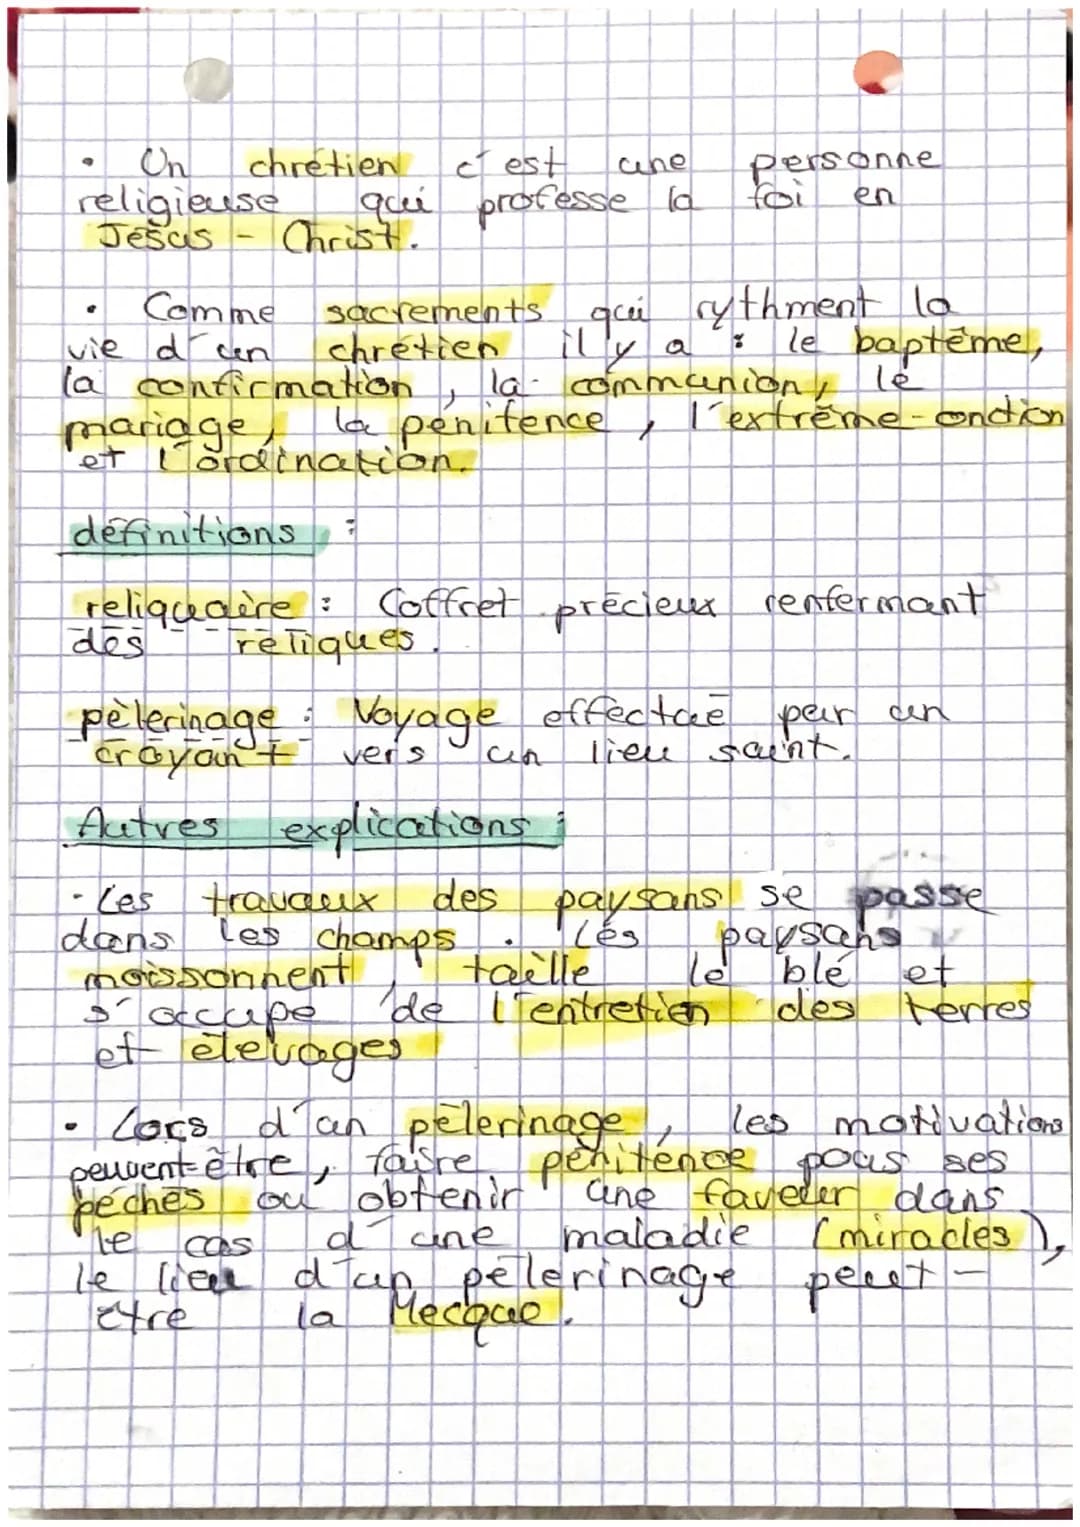 • Un chrétien c'est une personne
religieuse qui professe la foi en
Jésus - Christ.
• Comme sacrements qui rythment la
vie d'un chrétien il y a : le baptême,
la confirmation, la communion, le
mariage, la pénitence, l'extrême-onction
et l'ordination.
définitions :
reliquaire : Coffret précieux renfermant
des reliques.
pèlerinage : Voyage effectué par un
croyant vers un lieu saint.
Autres explications :
- Les travaux des paysans se passe
dans les champs. Les paysans
moissonnent, taille le blé et
s'occupe de l'entretien des terres
et élevages
• Lors d'un pèlerinage, les motivations
peuvent-être, faire pénitence pour ses
péchés ou obtenir une faveur dans
le cas d'une maladie (miracles),
le lieu d'un pèlerinage peut-
être la Mecque.